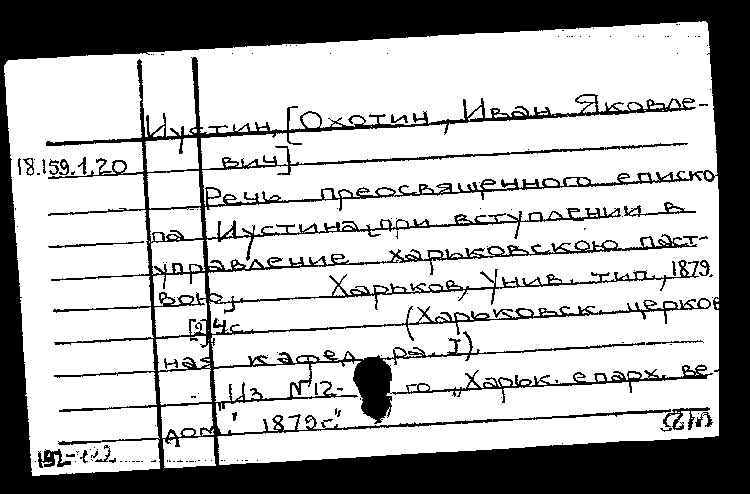 Иустин, [Охотин, Иван Яковле-
18.159.1.20 вич].
Речь преосвященного еписко
па Иустина, при вступлении в
управление харьковскою паст-
вою. Харьков, Унив. тип., 1879.
[2], 4 с. (Харьковск. церков
ная кафед ра. I).
"Из №12- го „Харьк. епарх. ве-
дом." 1879г."